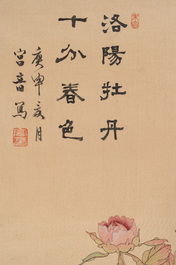 洛陽牡丹
十分春色
庚申亥月
宮音寫